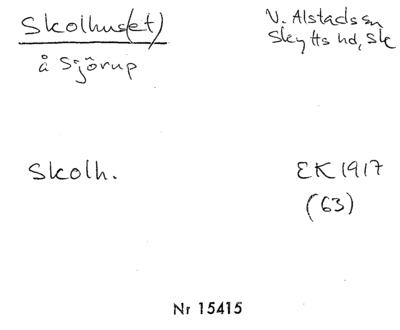 Skolhus(et)
å Sjörup
V. Alstads sn
Skytts hd, Sk
Skolh.
EK 1917
(63)
Nr 15415